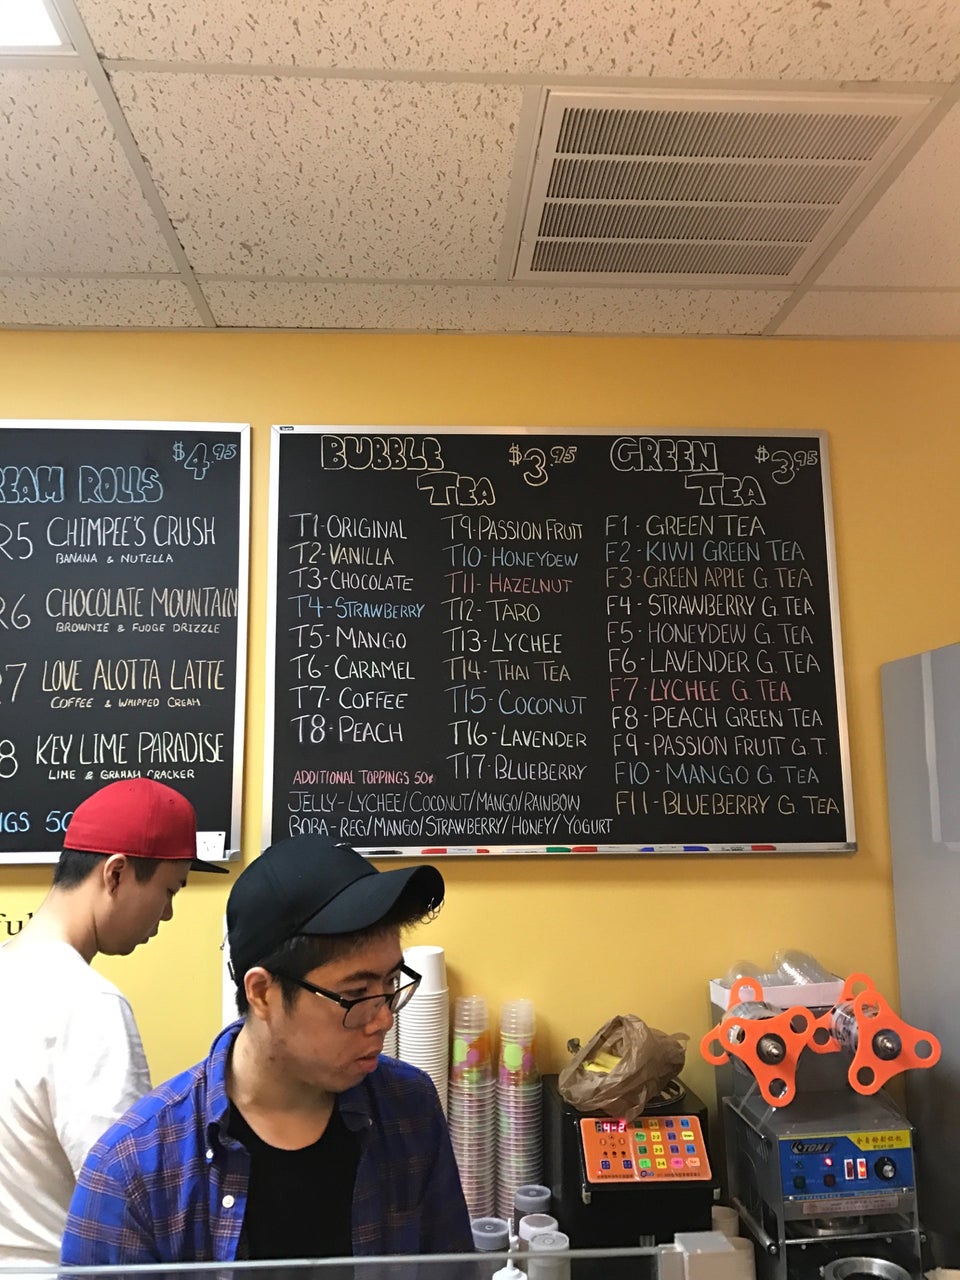 $4.95
REAM ROLLS
R5 CHIMPEE'S CRUSH
BANANA & NUTELLA
R6 CHOCOLATE MOUNTAIN
BROWNIE & FUDGE DRIZZLE
7 LOVE ALOTTA LATTE
COFFEE & WHIPPED CREAM
8 KEY LIME PARADISE
LIME & GRAHAM CRACKER
NGS 50
ful
BUBBLE TEA $3.95
T1-ORIGINAL
T2-VANILLA
T3-CHOCOLATE
T4-STRAWBERRY
T5-MANGO
T6-CARAMEL
T7-COFFEE
T8-PEACH
T9-PASSION FRUIT
T10-HONEYDEW
T11-HAZELNUT
T12-TARO
T13-LYCHEE
T14-THAI TEA
T15-COCONUT
T16-LAVENDER
T17-BLUEBERRY
ADDITIONAL TOPPINGS 50¢
JELLY-LYCHEE/COCONUT/MANGO/RAINBOW
BOBA-REG/MANGO/STRAWBERRY/HONEY/YOGURT
GREEN TEA $3.95
F1-GREEN TEA
F2-KIWI GREEN TEA
F3-GREEN APPLE G. TEA
F4-STRAWBERRY G. TEA
F5-HONEYDEW G. TEA
F6-LAVENDER G. TEA
F7-LYCHEE G. TEA
F8-PEACH GREEN TEA
F9-PASSION FRUIT G.T.
F10-MANGO G. TEA
F11-BLUEBERRY G. TEA
4-2